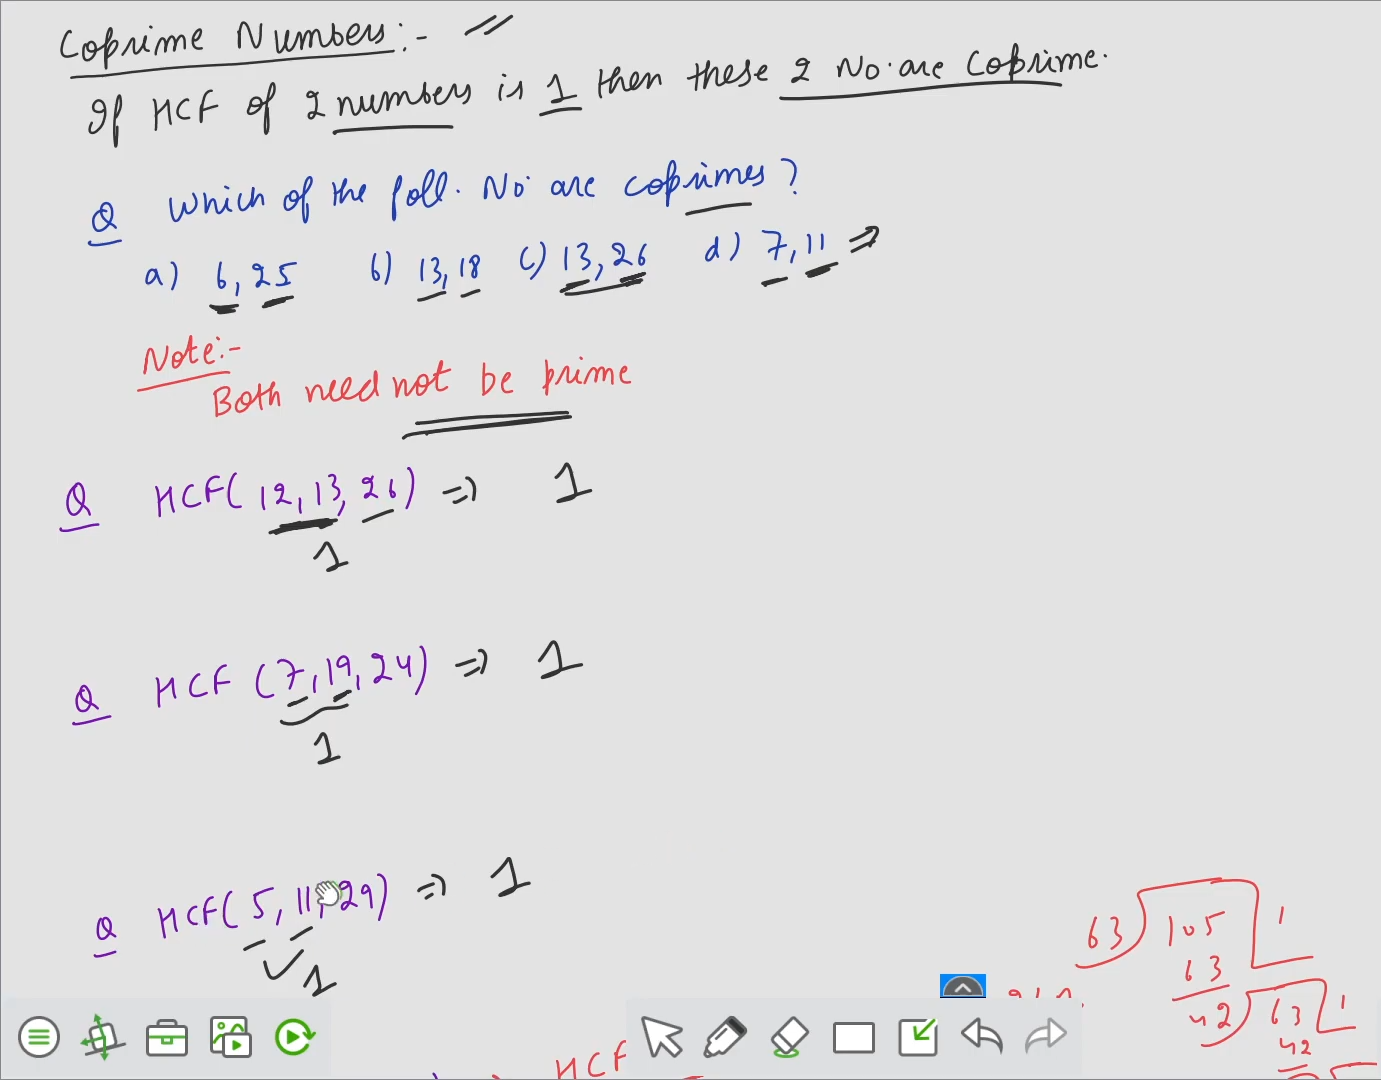 Coprime Numbers:-
If HCF of 2 numbers is 1 then these 2 No. are Coprime.
Q Which of the foll. No. are coprimes?
a) 6, 25 b) 13, 18 c) 13, 26 d) 7, 11 ⇒
Note:-
Both need not be prime
Q HCF(12, 13, 26) ⇒ 1
1
Q HCF (7, 19, 24) ⇒ 1
1
Q HCF(5, 11, 29) ⇒ 1
1
63) 105 1
63
42) 63 1
42
HCF